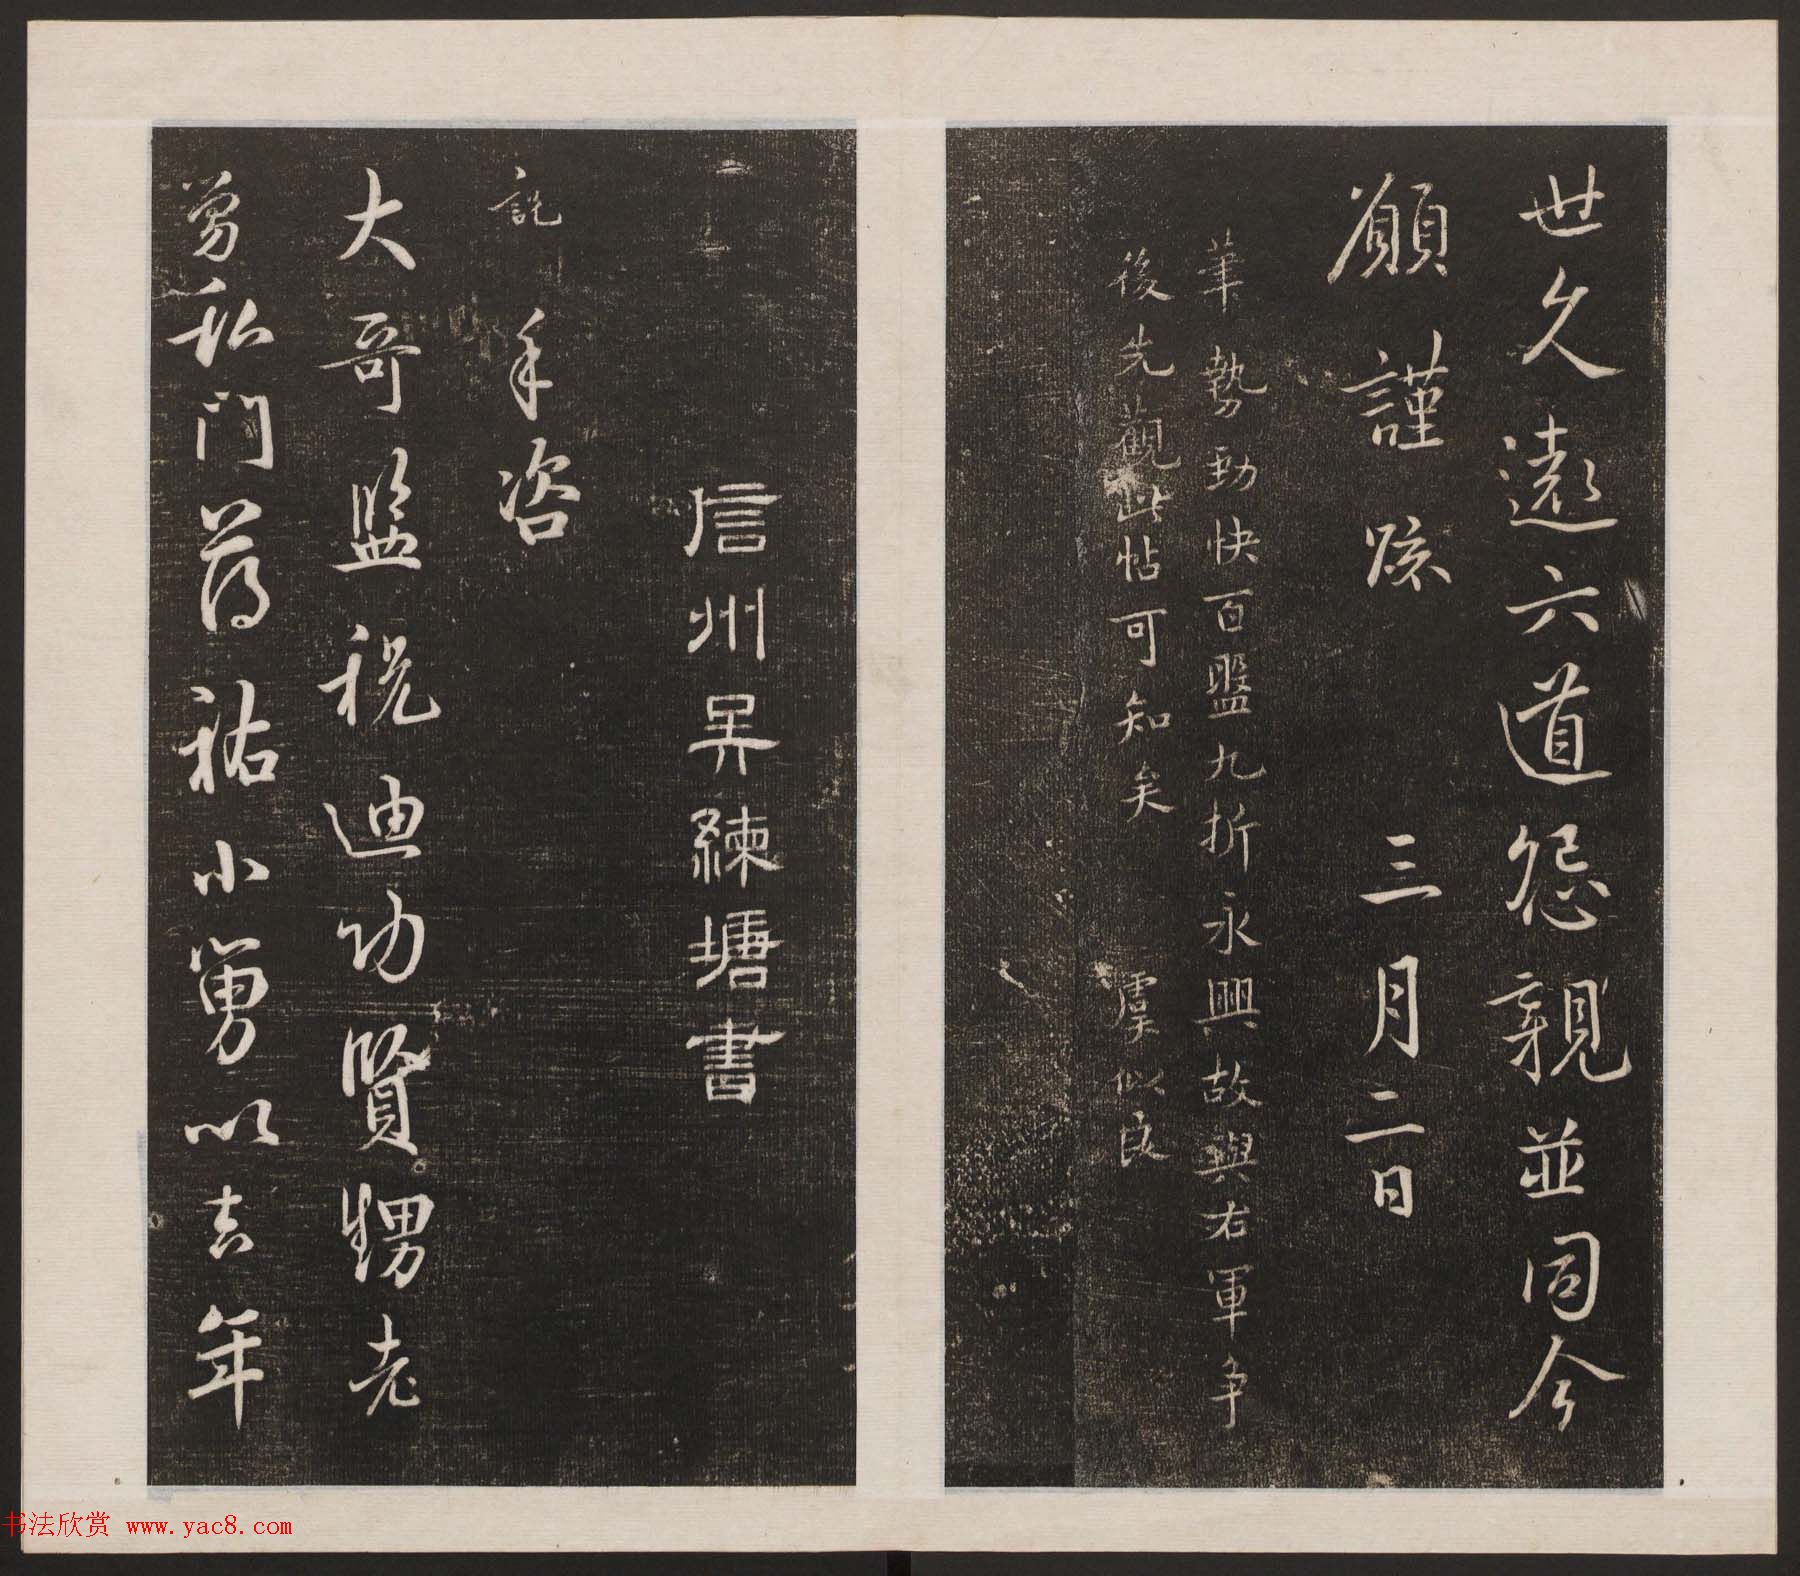 世久遠六道怨親並同今
願謹疏　三月二日
筆勢勁快百盤九折永興故與右軍争
後先觀此帖可知矣　虞似良
信州吴練塘書
説手咨
大哥监税迪功賢甥老
舅私門薄祐小舅以去年
书法欣赏 www.yac8.com